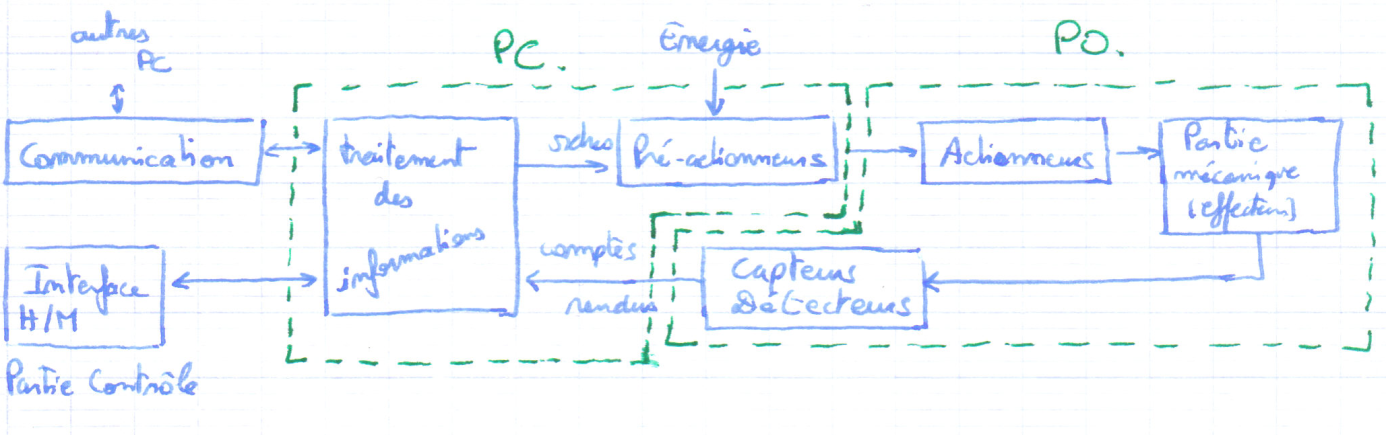 autres
PC
PC.
Énergie
PO.
Communication
traitement
des
informations
ordres
Pré-actionneurs
Actionneurs
Partie
mécanique
(effecteurs)
Interface
H/M
comptes
rendus
Capteurs
Détecteurs
Partie Contrôle